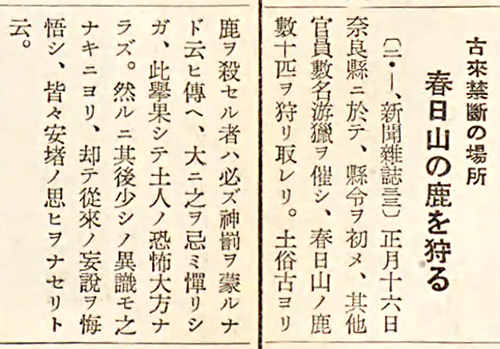 古來禁斷の場所
春日山の鹿を狩る
〔二・一、新聞雜誌三〕正月十六日
奈良縣ニ於テ、縣令ヲ初メ、其他
官員數名游獵ヲ催シ、春日山ノ鹿
數十匹ヲ狩リ取レリ。土俗古ヨリ
鹿ヲ殺セル者ハ必ズ神罰ヲ蒙ルナ
ド云ヒ傳ヘ、大ニ之ヲ忌ミ憚リシ
ガ、此擧果シテ土人ノ恐怖大方ナ
ラズ。然ルニ其後少シノ異議モ之
ナキニヨリ、却テ從來ノ妄說ヲ悔
悟シ、皆々安堵ノ思ヒヲナセリト
云。